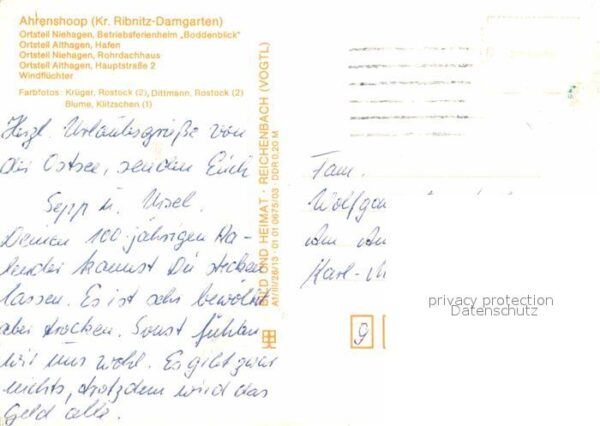 Ahrenshoop (Kr. Ribnitz-Damgarten)
Ortsteil Niehagen, Betriebsferienheim „Boddenblick"
Ortsteil Althagen, Hafen
Ortsteil Niehagen, Rohrdachhaus
Ortsteil Althagen, Hauptstraße 2
Windflüchter
Farbfotos: Krüger, Rostock (2), Dittmann, Rostock (2)
Blume, Klitzschen (1)
Herzl. Urlaubsgrüße von
der Ostsee, senden Euch
Sepp u. Ursel.
Deinen 100-jährigen Ka-
lender kannst Du stecken
lassen. Es ist sehr bewölkt
aber trocken. Sonst fühlen
wir uns wohl. Es gibt zwar
nichts, trotzdem wird das
Geld alle.
BILD UND HEIMAT · REICHENBACH (VOGTL)
A1/III/26/13 · 01 01 0675/03 · DDR 0,20 M
Fam.
Wolfgan
Am
Karl-M
privacy protection
Datenschutz
9